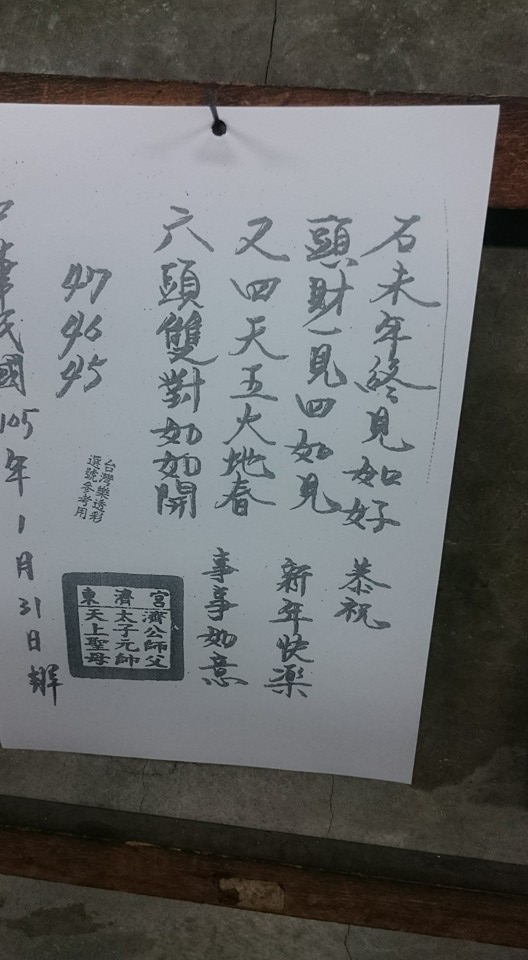 石未年終見如好
頭財一見四如見
又四天五火地春
六頭雙對如如開
恭祝
新年快樂
事事如意
47
46
45
台灣樂透彩
選號參考用
東濟宮
濟公師父
太子元帥
天上聖母
華民國105年1月31日